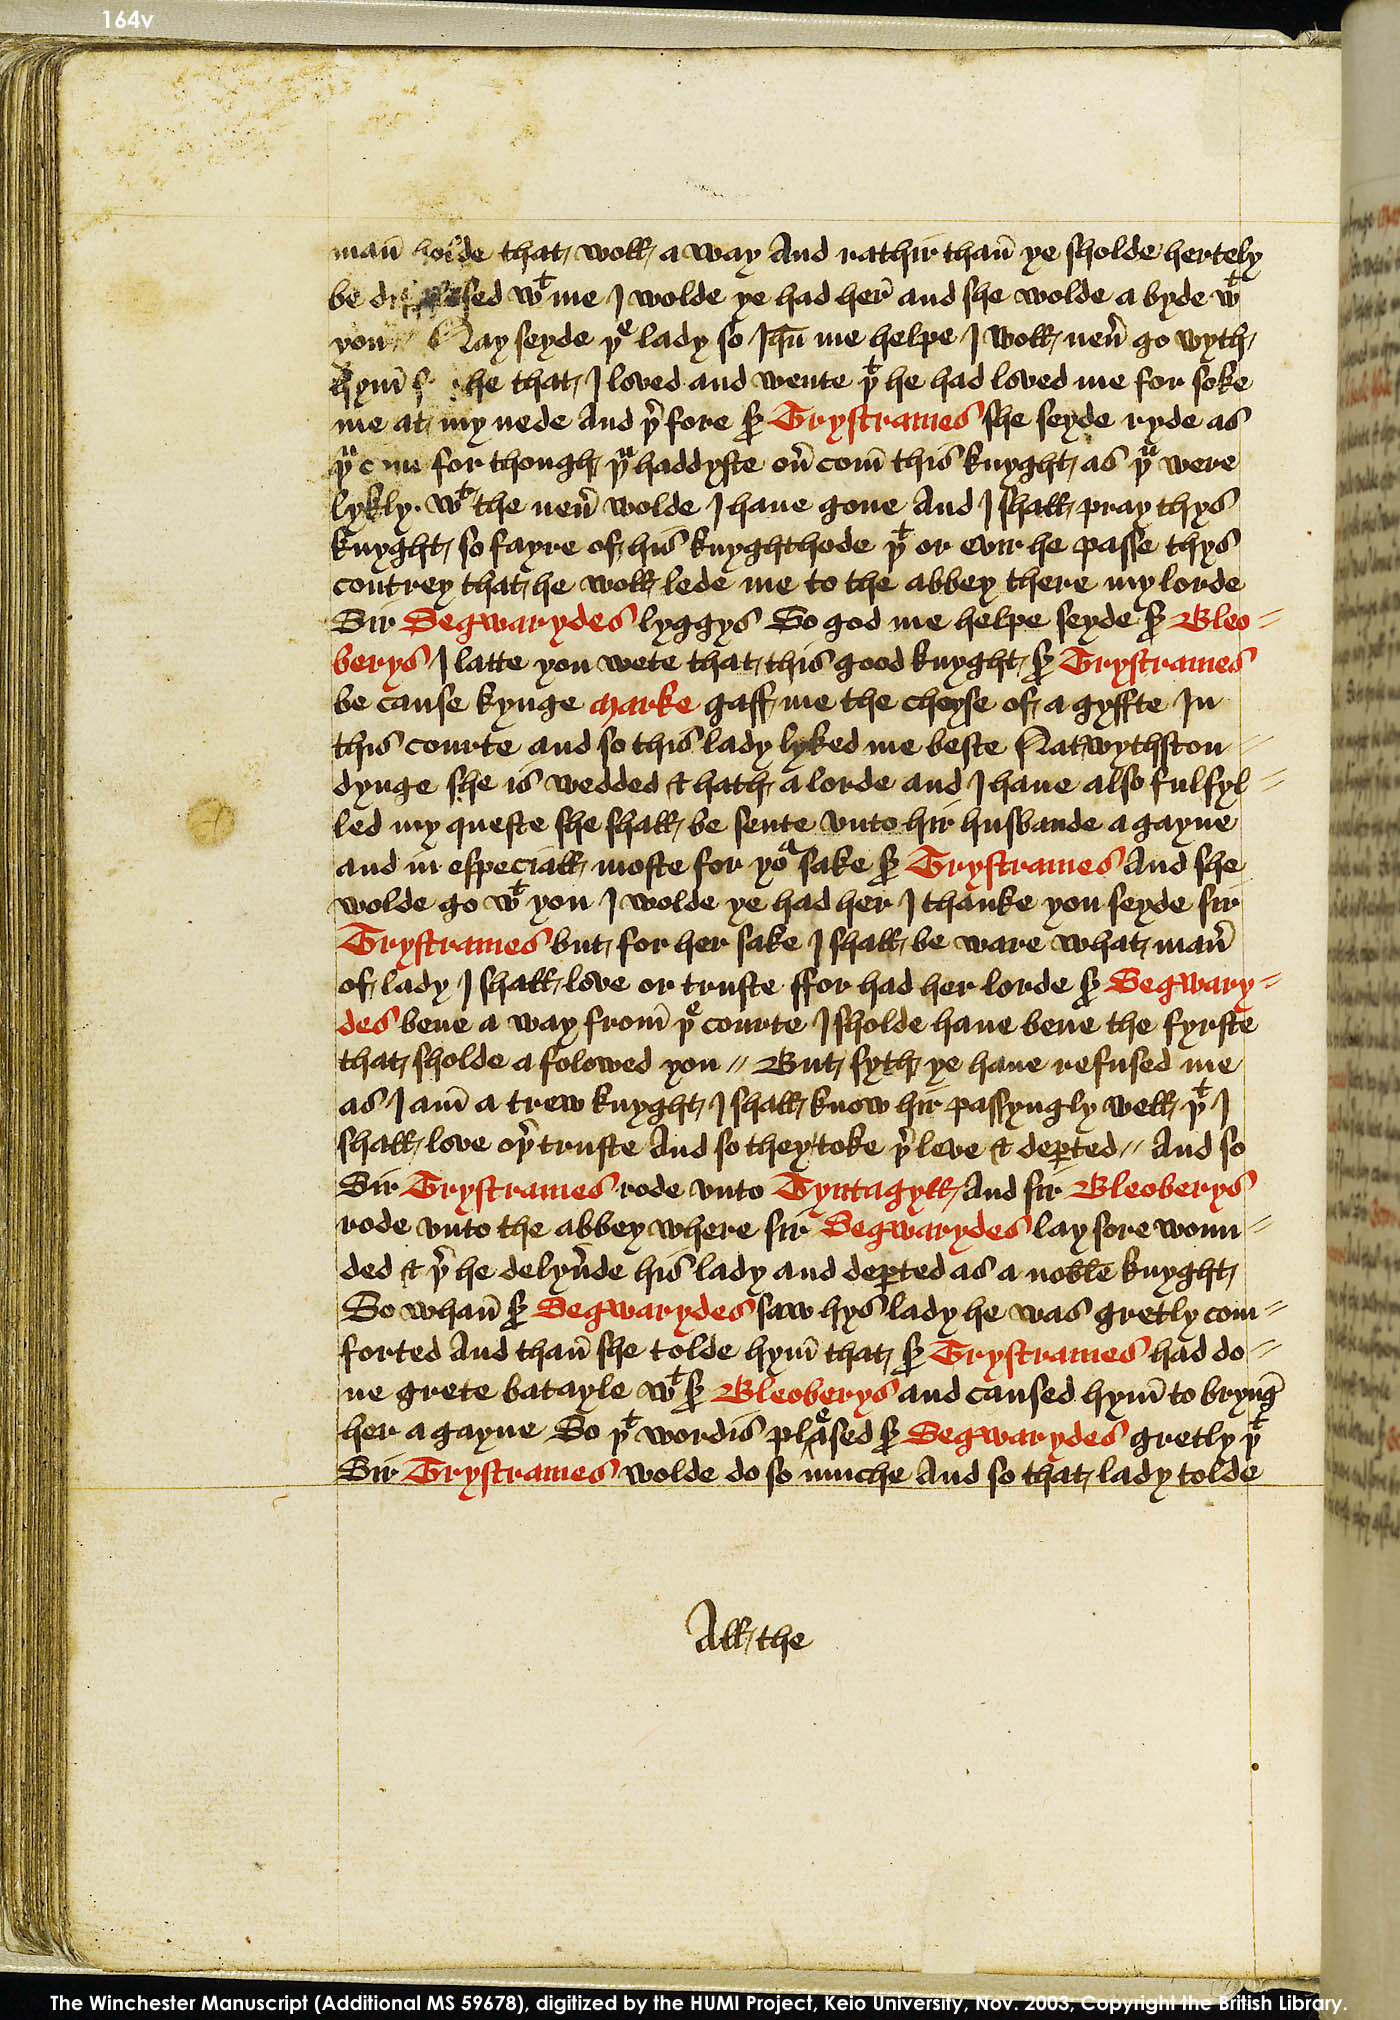 164v
man̄ holde that woll a way And rathir than̄ ye sholde hertely
be sed wᵗ me I wolde ye had her̄ and she wolde a byde wᵗ
you // Nay seyde yᵉ lady so Ihū me helpe I woll neu̾ go wyth
hym̄ he that I loved and wente yᵗ he had loved me for soke
me at my nede And y̾ fore s̾ Trystrames she seyde ryde as
yᵘ for though yᵘ haddyste ou̾ com̄ this knyght as yᵘ were
lykly. wᵗ the neu̾ wolde I haue gone And I shall pray thys
knyght so fayre of his knyghthode yᵗ or evir he passe thys
contrey that he woll lede me to the abbey there my lorde
Sir Segwarydes lyggys So god me helpe seyde s̾ Bleo=
berys I latte you wete that this good knyght s̾ Trystrames
be cause kynge Marke gaff me the choyse of a gyffte In
this courte and so this lady lyked me beste Natwythston=
dynge she is wedded & hath a lorde and I haue also fulfyl=
led my queste she shall be sente vnto hir husbande a gayne
and in especiall moste for yoᵃ sake s̾ Trystrames And she
wolde go wᵗ you I wolde ye had her I thanke you seyde sir
Trystrames but for her sake I shall be ware what man̾
of lady I shall love or truste ffor had her lorde s̾ Segwary=
des bene a way from̄ yᵉ courte I sholde haue bene the fyrste
that sholde a folowed you // But syth ye haue refused me
as I am̄ a trew knyght I shall know hir passyngly well yᵗ I
shall love oy̾ truste And so they toke y̾ leve & dep̱ted // And so
Sir Trystrames rode vnto Tyntagyll And sir Bleoberys
rode vnto the abbey where sir Segwarydes lay sore woun=
ded & y̾ he delyu̾de his lady and dep̱ted as a noble knyght
So whan̄ s̾ Segwarydes saw hys lady he was gretly com=
forted And than̄ she tolde hym̄ that s̾ Trystrames had do=
ne grete batayle wᵗ s̾ Bleoberys and caused hym̄ to bryng̾
her a gayne So yᵗ wordis plesed s̾ Segwarydes gretly yᵗ
Sir Trystrames wolde do so muche And so that lady tolde
All the
The Winchester Manuscript (Additional MS 59678), digitized by the HUMI Project, Keio University, Nov. 2003; Copyright the British Library.